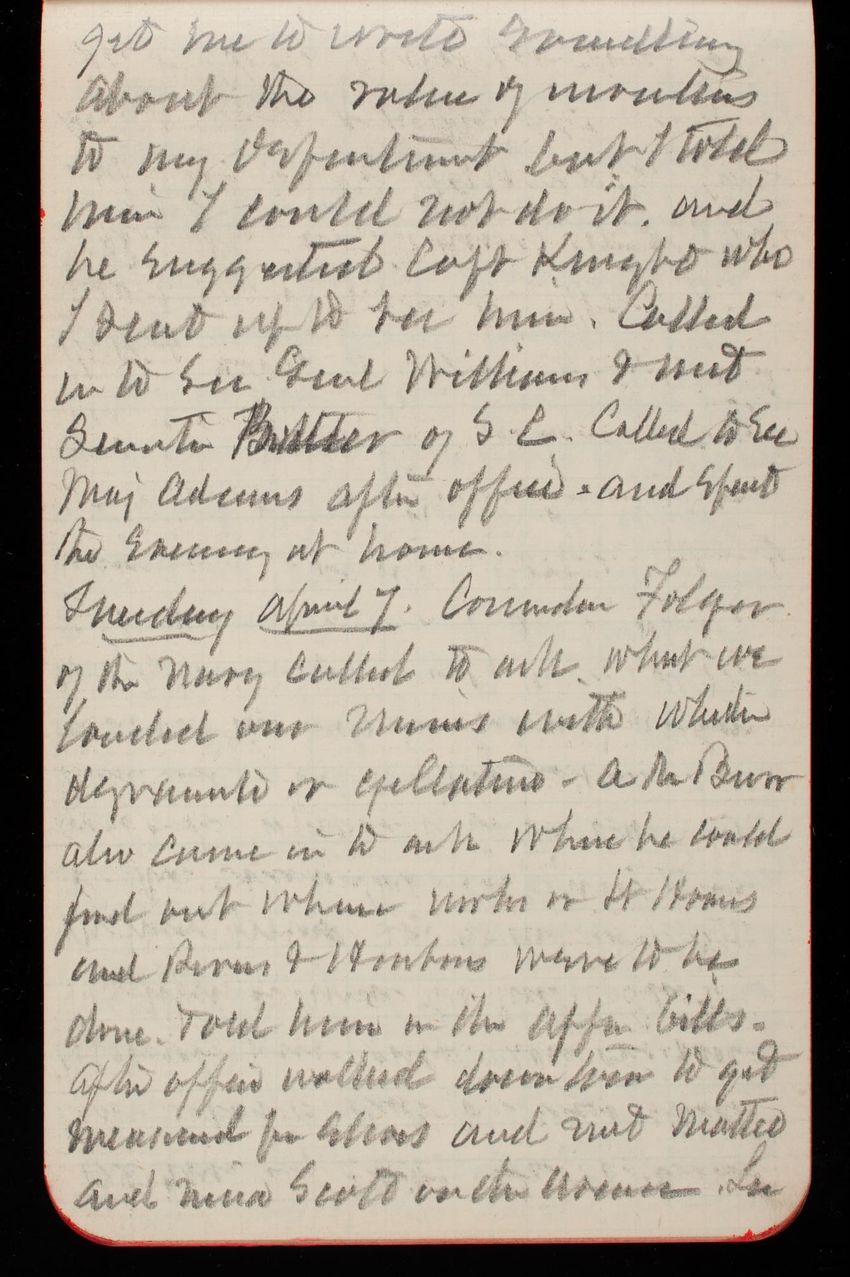 get me to write something
about the value of
to my Department but I told
him I could not do it. and
he suggested Capt Knight who
I sent up to see him. Called
in to see Genl Williams & met
Senator Butler of S C. Called to see
Maj Adams after office - and spent
the Evening at home.
Tuesday April 7. Comander Folger
of the Navy called to ask what we
loaded our mines with whether
dynamite or gellatine - A Mr Burr
also came in to ask where he could
find out where works on Lt Houses
and Rivers & Harbors were to be
done. Told him in the appn bills.
After office walked down town to get
measured for shoes and met Mattie
and Nina Scott on the avenue.